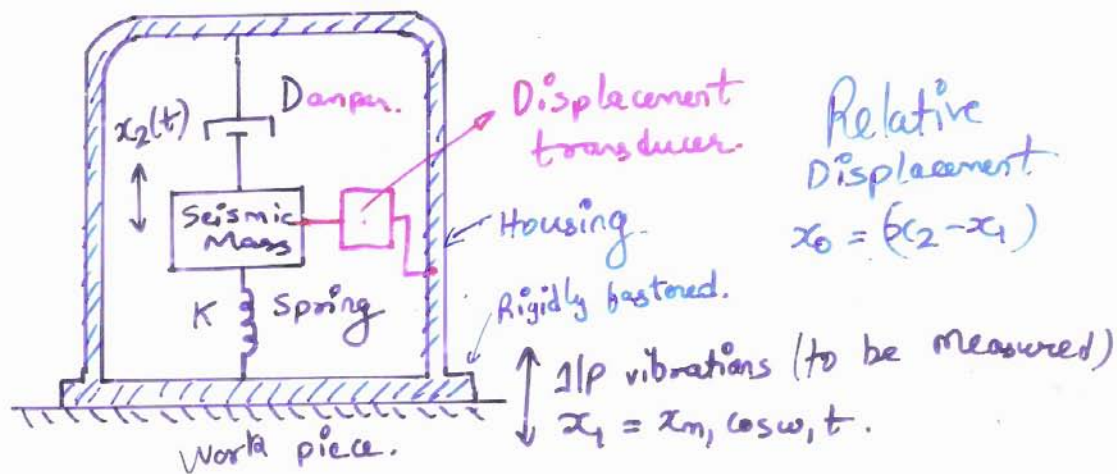 x₂(t)
Damper.
Displacement
transducer.
Relative
Displacement
x₀ = (x₂ - x₁)
Seismic
Mass
Housing.
K Spring
Rigidly fastened.
I/P vibrations (to be measured)
x₁ = xm₁ cosω₁t.
Work piece.